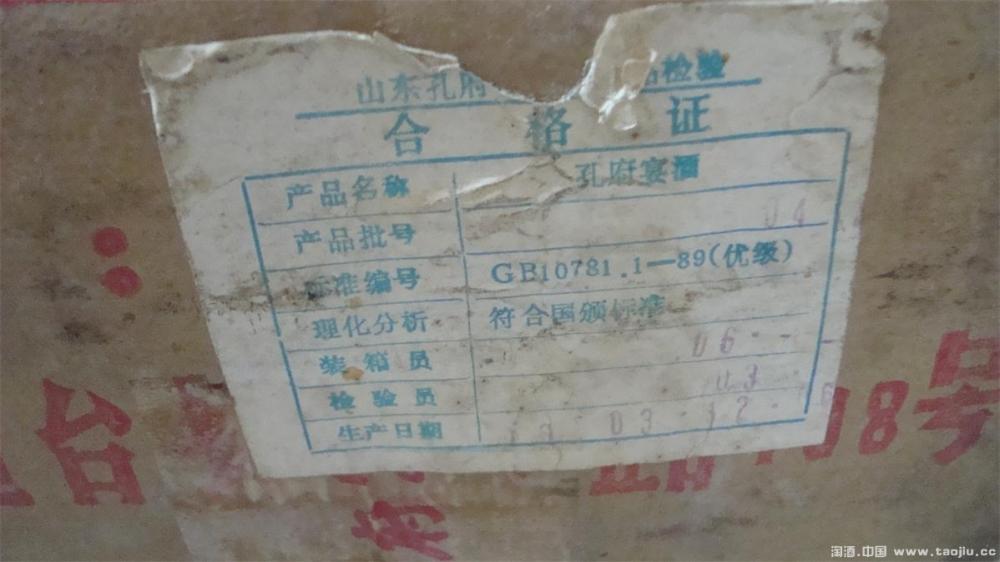 山东孔府 品检验
合格证
产品名称 孔府宴酒
产品批号 04
标准编号 GB10781.1—89(优级)
理化分析 符合国颁标准
装箱员 06
检验员 03
生产日期 03 12
台 108号
淘酒.中国 www.taojiu.cc